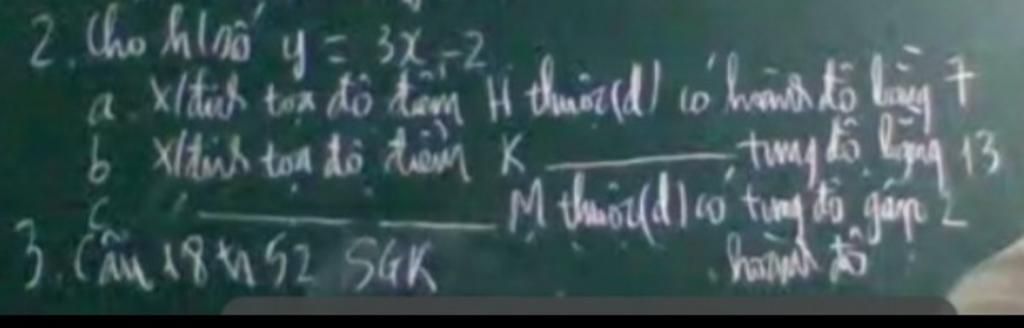 2. Cho h/số y = 3x - 2
a. X/định tọa độ điểm H thuộc (d) có hoành độ bằng 7
b X/định tọa độ điểm K ——— tung độ bằng 13
c ——— M thuộc (d) có tung độ gấp 2 hoành độ
3. Câu 18 tr 52 SGK